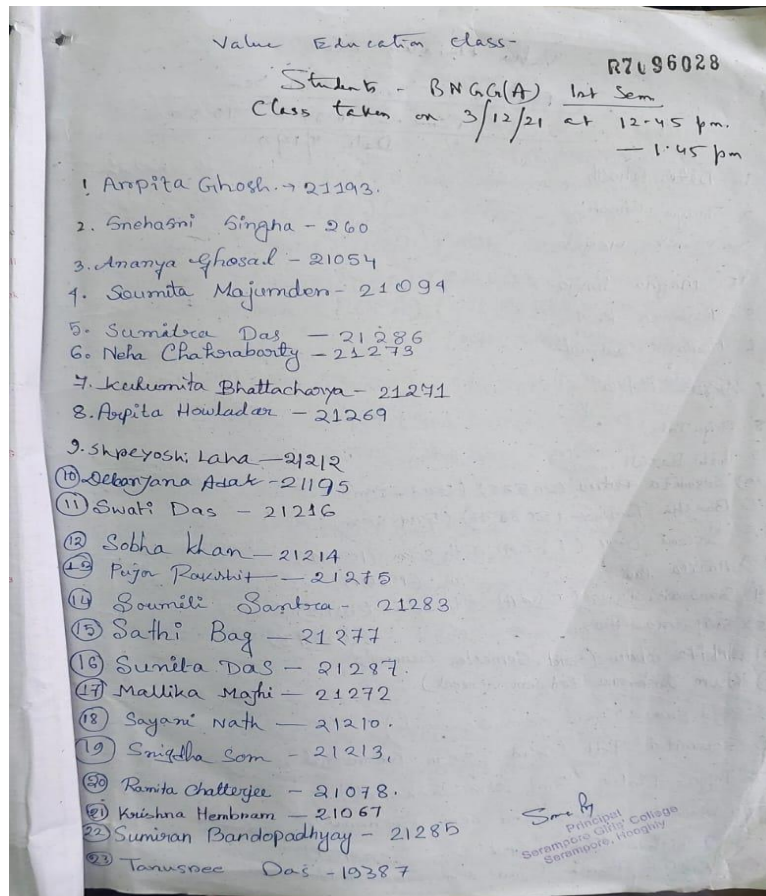 Value Education class-
R7U96028
Students - BNGG(A) Ist Sem
Class taken on 3/12/21 at 12.45 pm.
— 1.45 pm
1 Arpita Ghosh. → 21193.
2. Snehasni Singha - 260
3. Ananya Ghosal - 21054
4. Soumita Majumder - 21094
5. Sumitra Das — 21286
6. Neha Chakraborty - 21273
7. Kuhumita Bhattacharya - 21271
8. Arpita Howladar - 21269
9. Shreyoshi Laha — 21212
10 Debanjana Adak - 21195
11 Swati Das - 21216
12 Sobha Khan — 21214
13 Puja Rakshit — 21275
14 Soumili Santra - 21283
15 Sathi Bag — 21277
16 Sunita Das - 21287.
17 Mallika Majhi - 21272
18 Sayani Nath — 21210.
19 Snigdha Som - 21213,
20 Ramita Chatterjee - 21078.
21 Krishna Hembram — 21067
22 Sumiran Bandopadhyay - 21285
23 Tanusree Das - 19387
Principal
Serampore Girls' College
Serampore, Hooghly